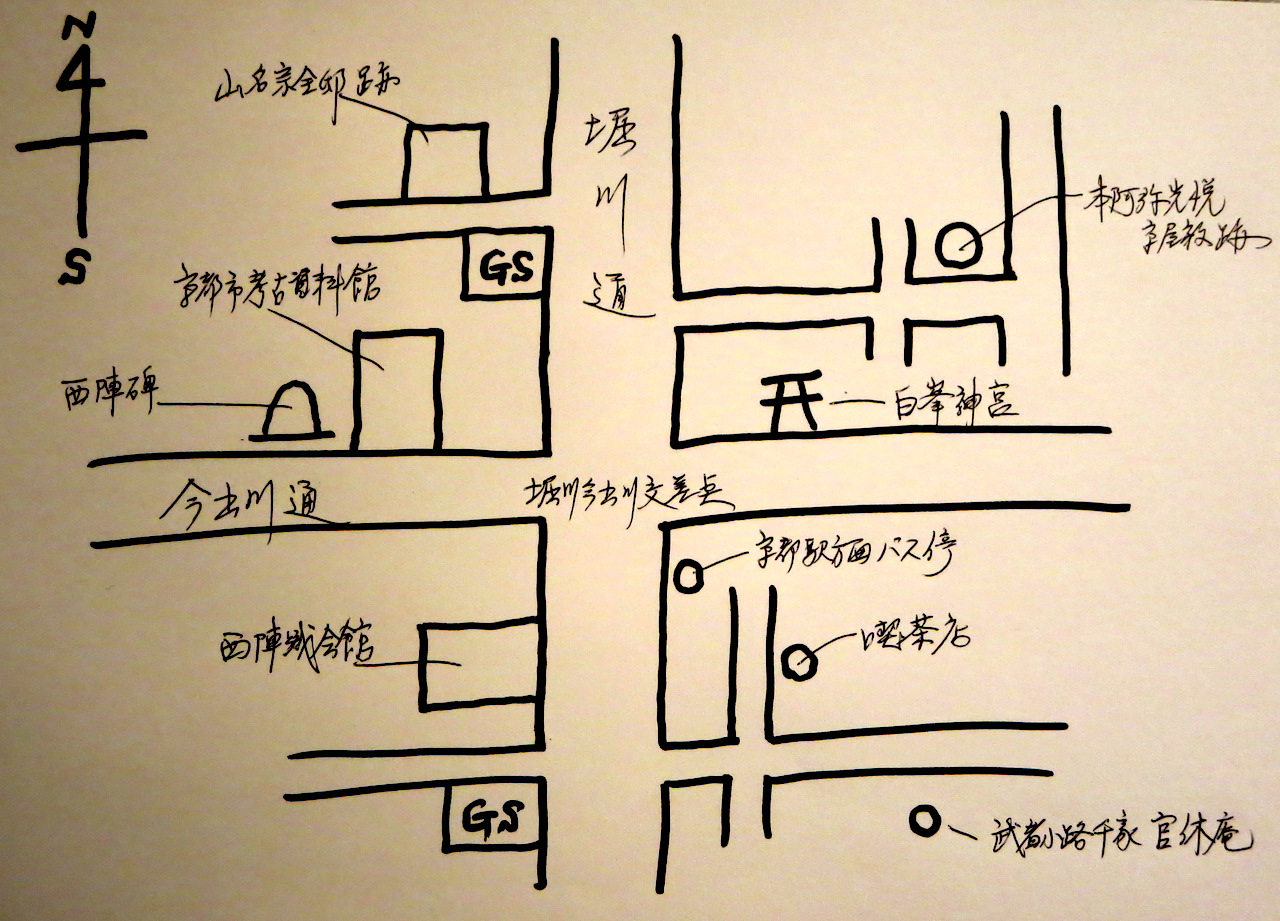 N
S
山名宗全邸跡
堀川通
本阿弥光悦
京屋敷跡
GS
京都市考古資料館
西陣碑
白峯神宮
今出川通
堀川今出川交差点
京都駅方面バス停
西陣織会館
喫茶店
GS
武者小路千家 官休庵